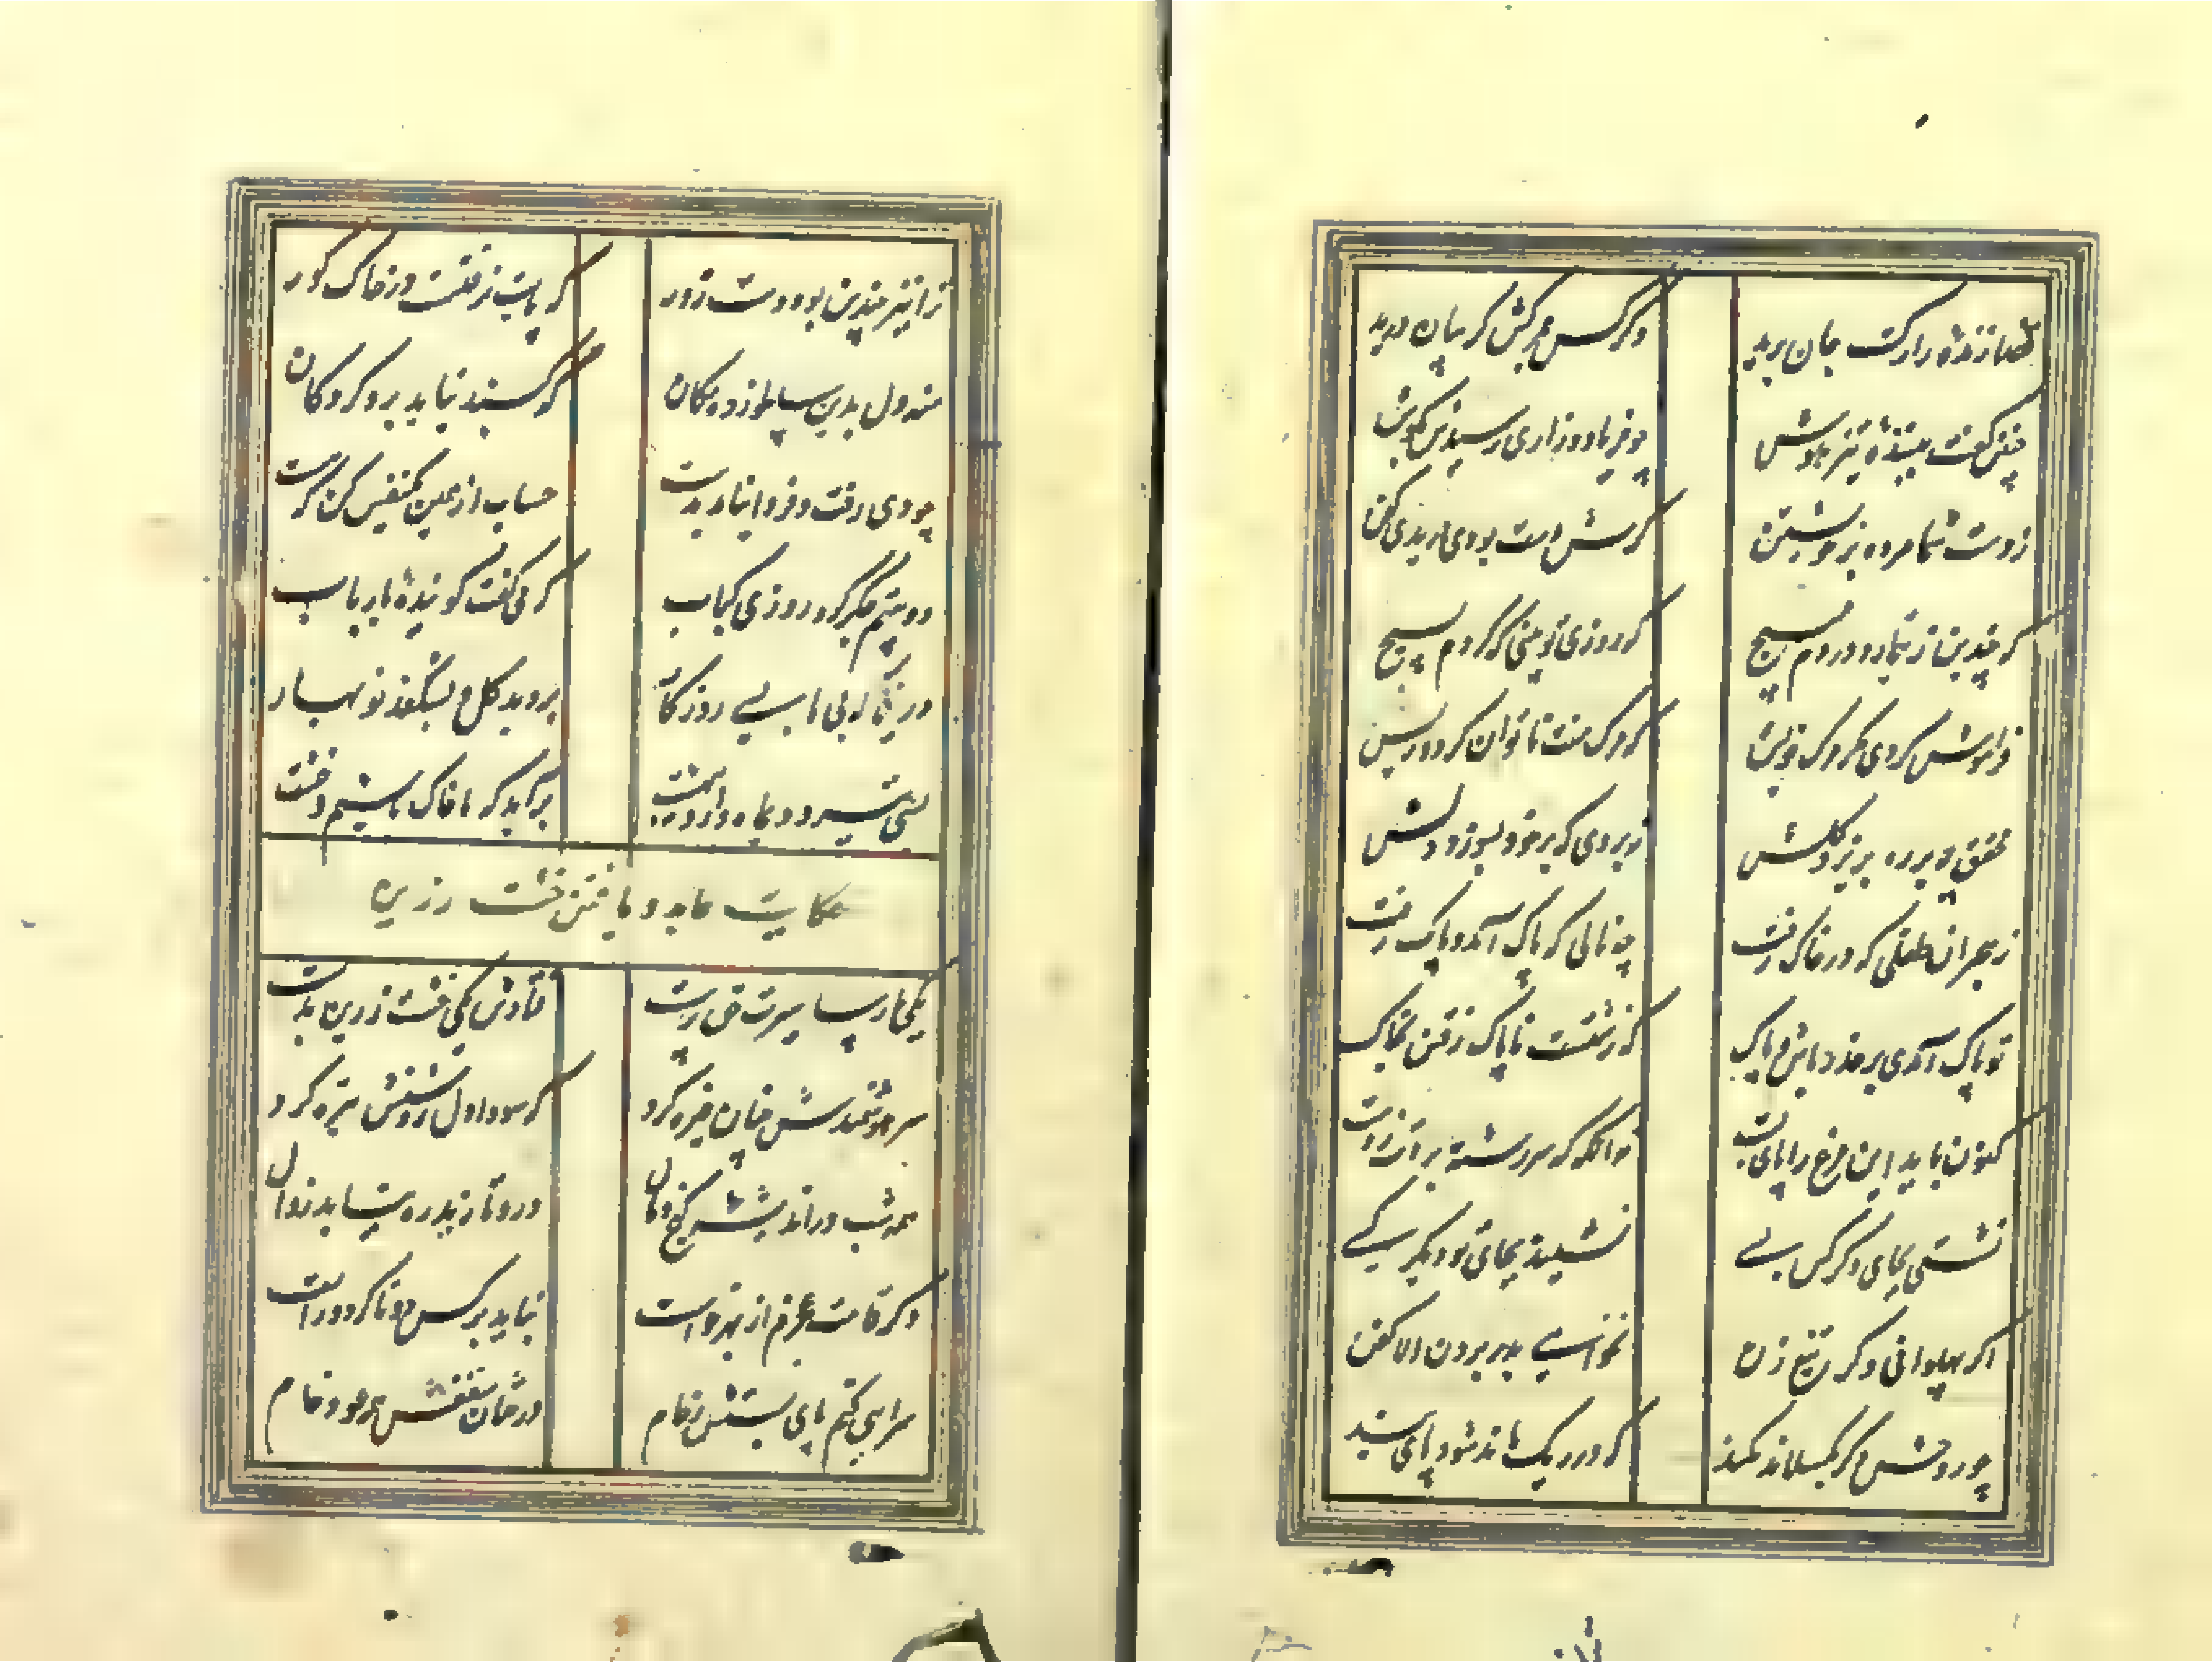 قضا زنده را رگ جان برید
دگر کس بمرگش گریبان درید
چنین گفت بیننده تیز هوش
چو فریاد و زاری رسیدش بگوش
ز دست شما مرده بر خویشتن
گرش دست بودی دریدی کفن
که چندین ز تیمار و دردم مپیچ
که روزی تو پیش که کردم بسیچ
فراموش کردی مگر مرگ خویش
که مرگ منت ناتوان کرد و ریش
محقق چو بر مرده ریزد گلش
نه بر وی که بر خود بسوزد دلش
ز هجران طفلی که در خاک رفت
چه نالی که پاک آمد و پاک رفت
تو پاک آمدی بر حذر باش و پاک
که زشتست ناپاک رفتن بخاک
کنون باید این مرغ را پای بست
نه آنگه که سررشته بردت ز دست
نشستی بجای دگر کس بسی
نشیند بجای تو دیگر کسی
اگر پهلوانی و گر تیغ زن
نخواهی بدر بردن الا کفن
وحش گر بگسلاند کمند
که در ریگ ماند شود پای بند
ترا نیز چندین بود دست زور
که پایت نرفتست در خاک گور
منه دل بدین مکان
که گنبد نپاید برو گردکان
چو دی رفت و فردا نیامد بدست
حساب از همین یکنفس کن که هست
دو بیتم جگر کرد روزی کباب
که می گفت گوینده با رباب
دریغا که بی ما بسی روزگار
بروید گل و بشکفد نو بهار
بسی تیر و دیماه و اردیبهشت
برآید که ما خاک باشیم و خشت
حکایت عابد و یافتن خشت زرین
یکی پارسا سیرت حق پرست
فتادش یکی خشت زرین بدست
سر هوشمندش چنان خیره کرد
که سودا دل روشنش تیره کرد
همه شب در اندیشه کین گنج و مال
درو تا زیم ره نیابد زوال
دگر قامت عجزم از بهر خواست
نباید بر کس دو تا کرد و راست
سرایی کنم پای بستش رخام
درختان سقفش همه عود خام